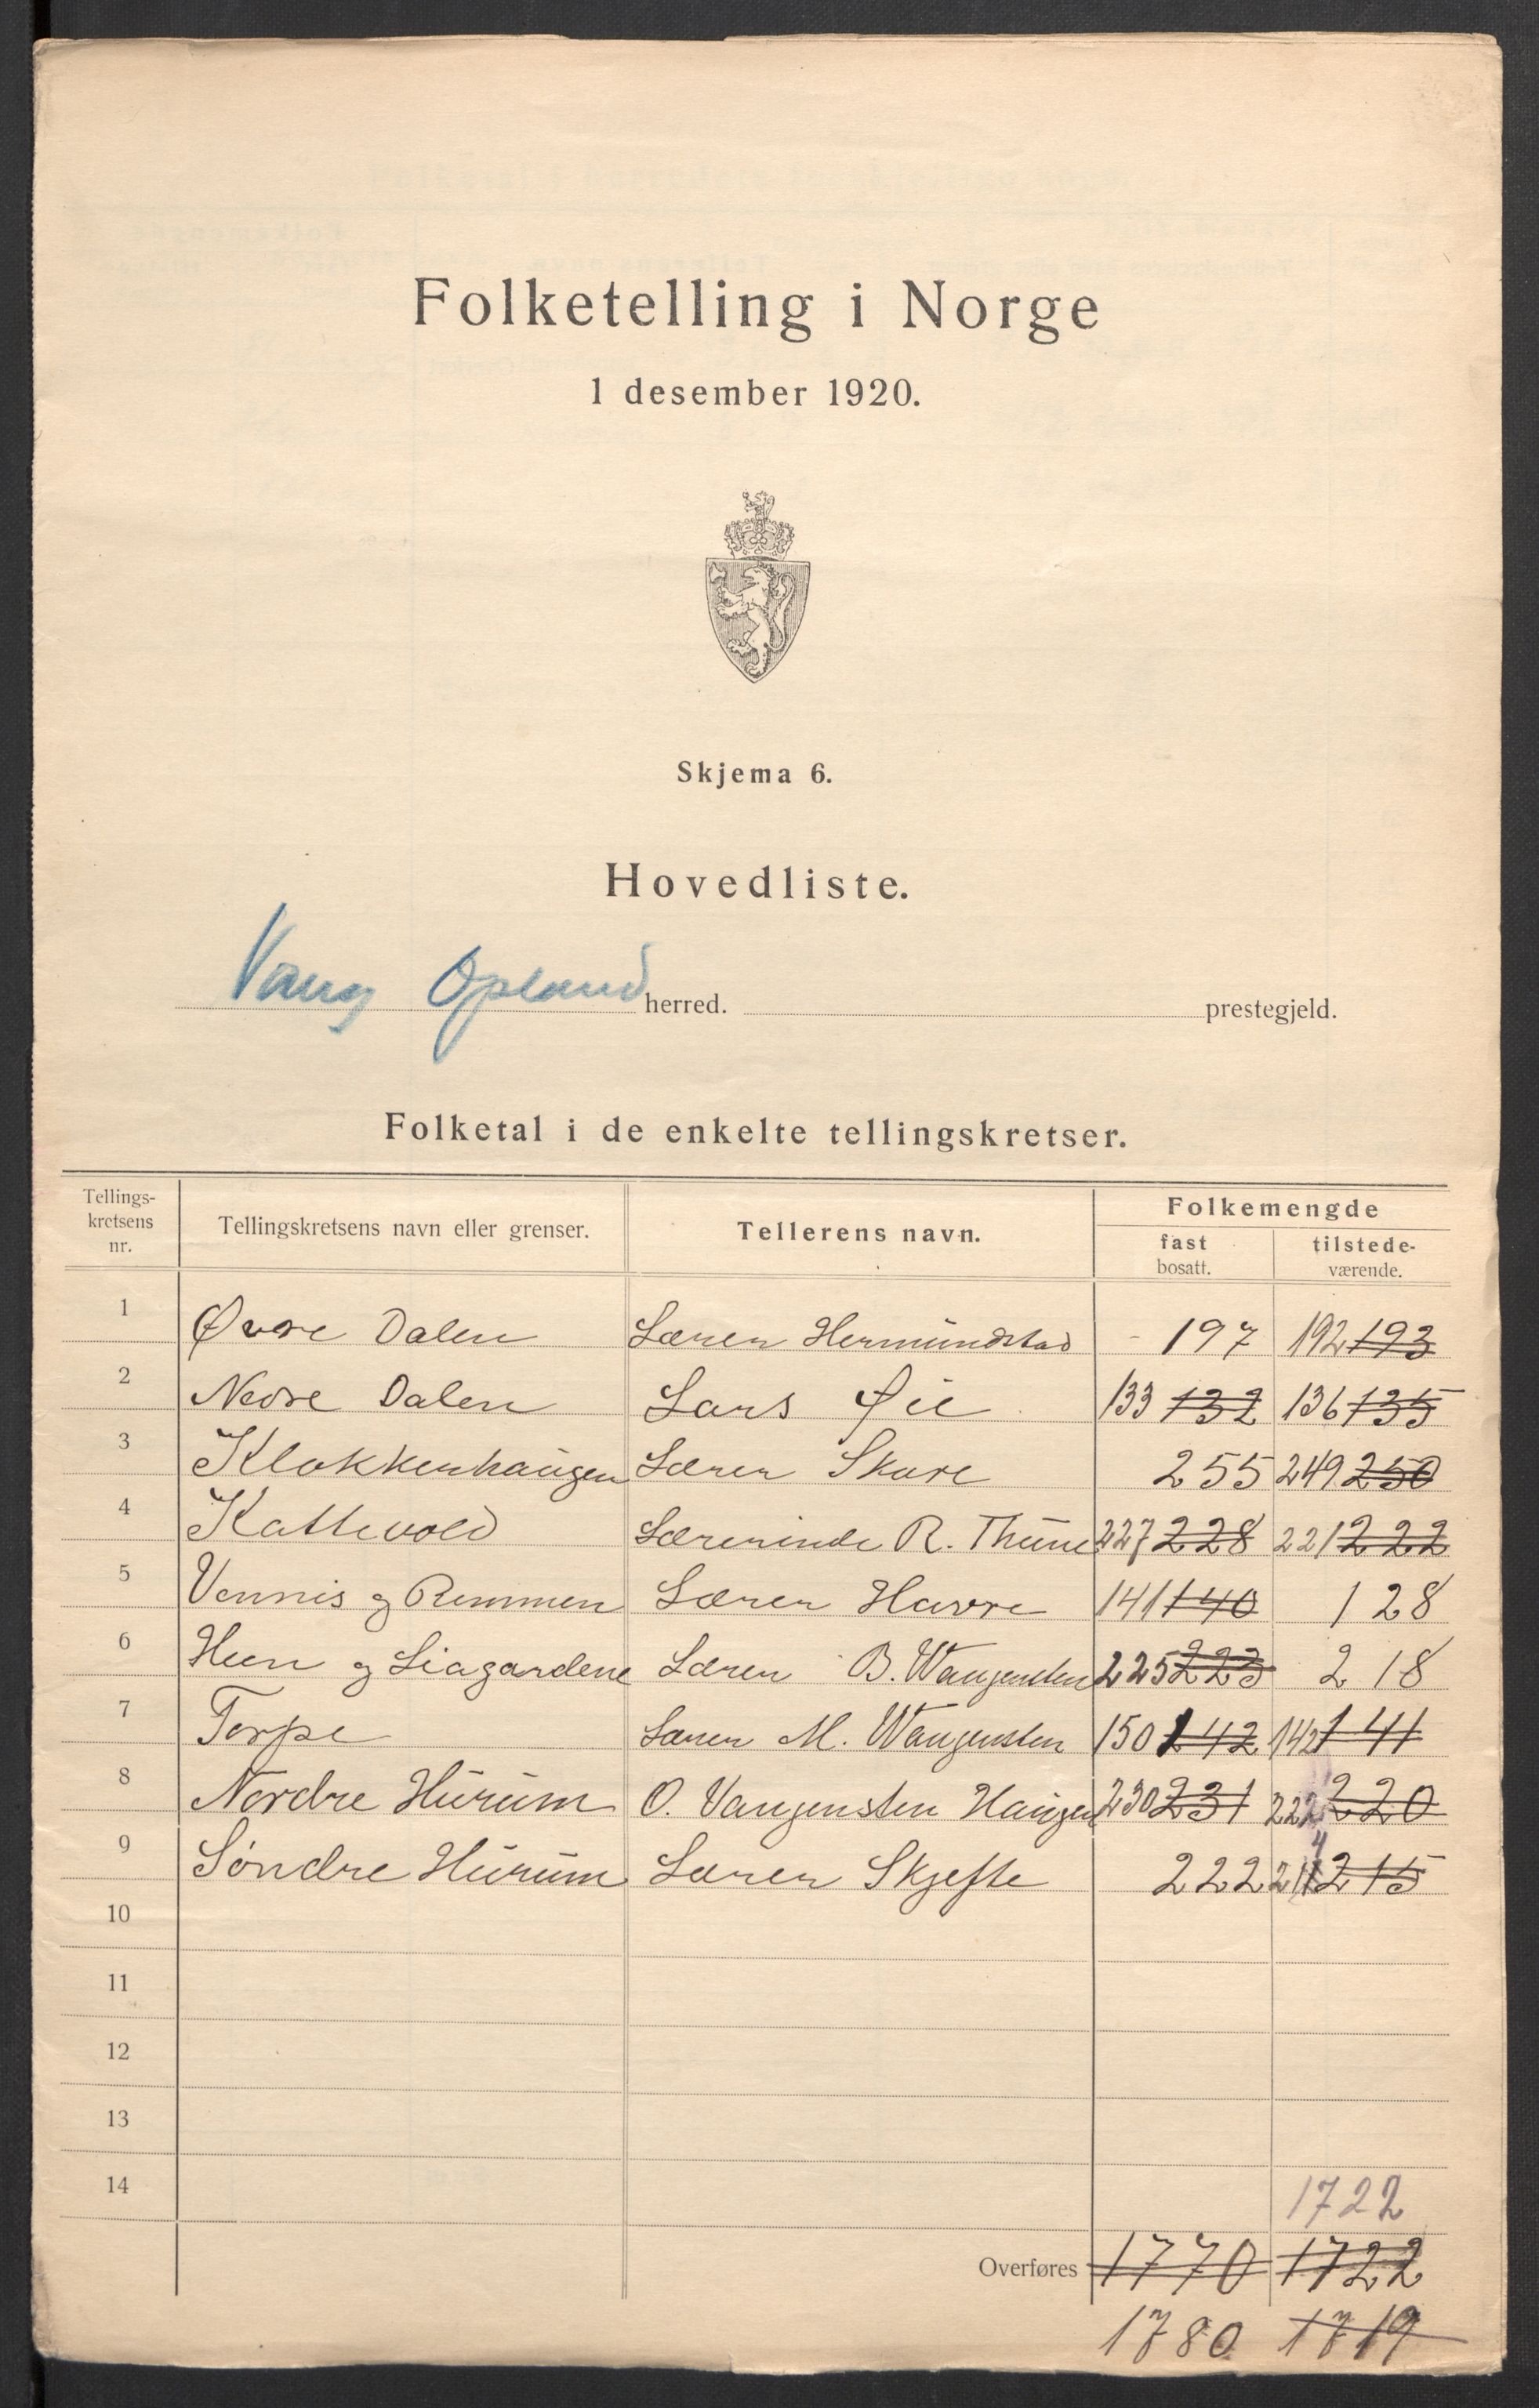 Folketelling i Norge
1 desember 1920.
Skjema 6.
Hovedliste.
Vang Opland herred. prestegjeld.
Folketal i de enkelte tellingskretser.
Tellings-kretsens nr. Tellingskretsens navn eller grenser. Tellerens navn. Folkemengde
fast bosatt. tilstede-værende.
1 Øvre Dalen Lærer Hermundstad 197 192 193
2 Nedre Dalen Lars Øie 133 132 136 135
3 Klokkerhaugen Lærer Skare 255 249 250
4 Kattevold Lærerinde R. Thune 227 228 221 222
5 Vennis og Remmen Lærer Havre 141 140 128
6 Heen og Liagardene Lærer B. Wangensten 225 223 218
7 Torpe Lærer M. Wangensten 150 142 142 141
8 Nordre Hurum O. Vangensten Haugen 230 231 222 220
9 Søndre Hurum Lærer Skjefte 222 214 215
10
11
12
13
14
1722
Overføres 1770 1722
1780 1719